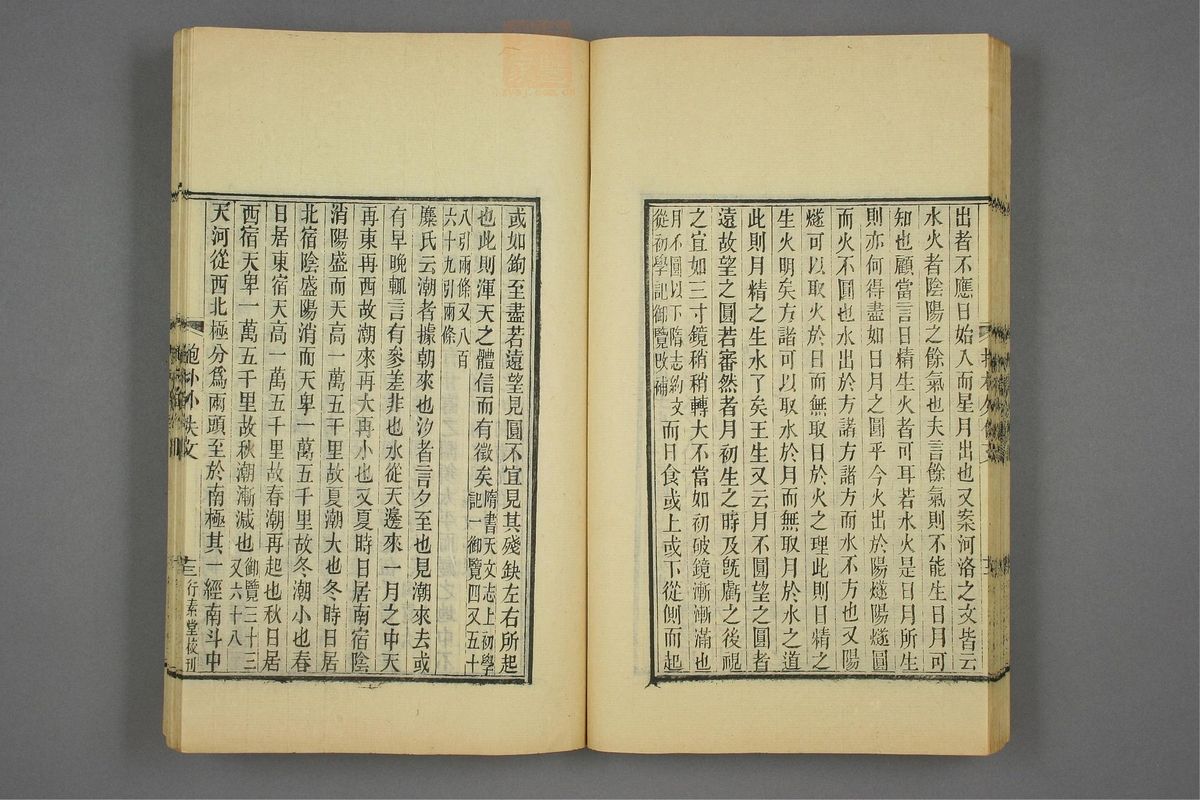 出者不應日始入而星月出也又案河洛之文皆云
水火者陰陽之餘氣也夫言餘氣則不能生日月可
知也顧當言日精生火者可耳若水火是日月所生
則亦何得盡如日月之圓乎今火出於陽燧陽燧圓
而火不圓也水出於方諸方諸方而水不方也又陽
燧可以取火於日而無取日於火之理此則日精之
生火明矣方諸可以取水於月而無取月於水之道
此則月精之生水了矣王生又云月不圓望之圓者
遠故望之圓若審然者月初生之時及旣虧之後視
之宜如三寸鏡稍稍轉大不當如初破鏡漸漸滿也
月不圓以下隋志約文
從初學記御覽改補
而日食或上或下從側而起
或如鉤至盡若遠望見圓不宜見其殘缺左右所起
也此則渾天之體信而有徵矣
隋書天文志上初學
記一御覽四又五十
八引兩條又八百
六十九引兩條
麋氏云潮者據朝來也汐者言夕至也見潮來去或
有早晚輒言有參差非也水從天邊來一月之中天
再東再西故潮來再大再小也又夏時日居南宿陰
消陽盛而天高一萬五千里故夏潮大也冬時日居
北宿陰盛陽消而天卑一萬五千里故冬潮小也春
日居東宿天高一萬五千里故春潮再起也秋日居
西宿天卑一萬五千里故秋潮漸減也
御覽二十三
又六十八
天河從西北極分爲兩頭至於南極其一經南斗中
抱朴外佚文
行素堂校刊